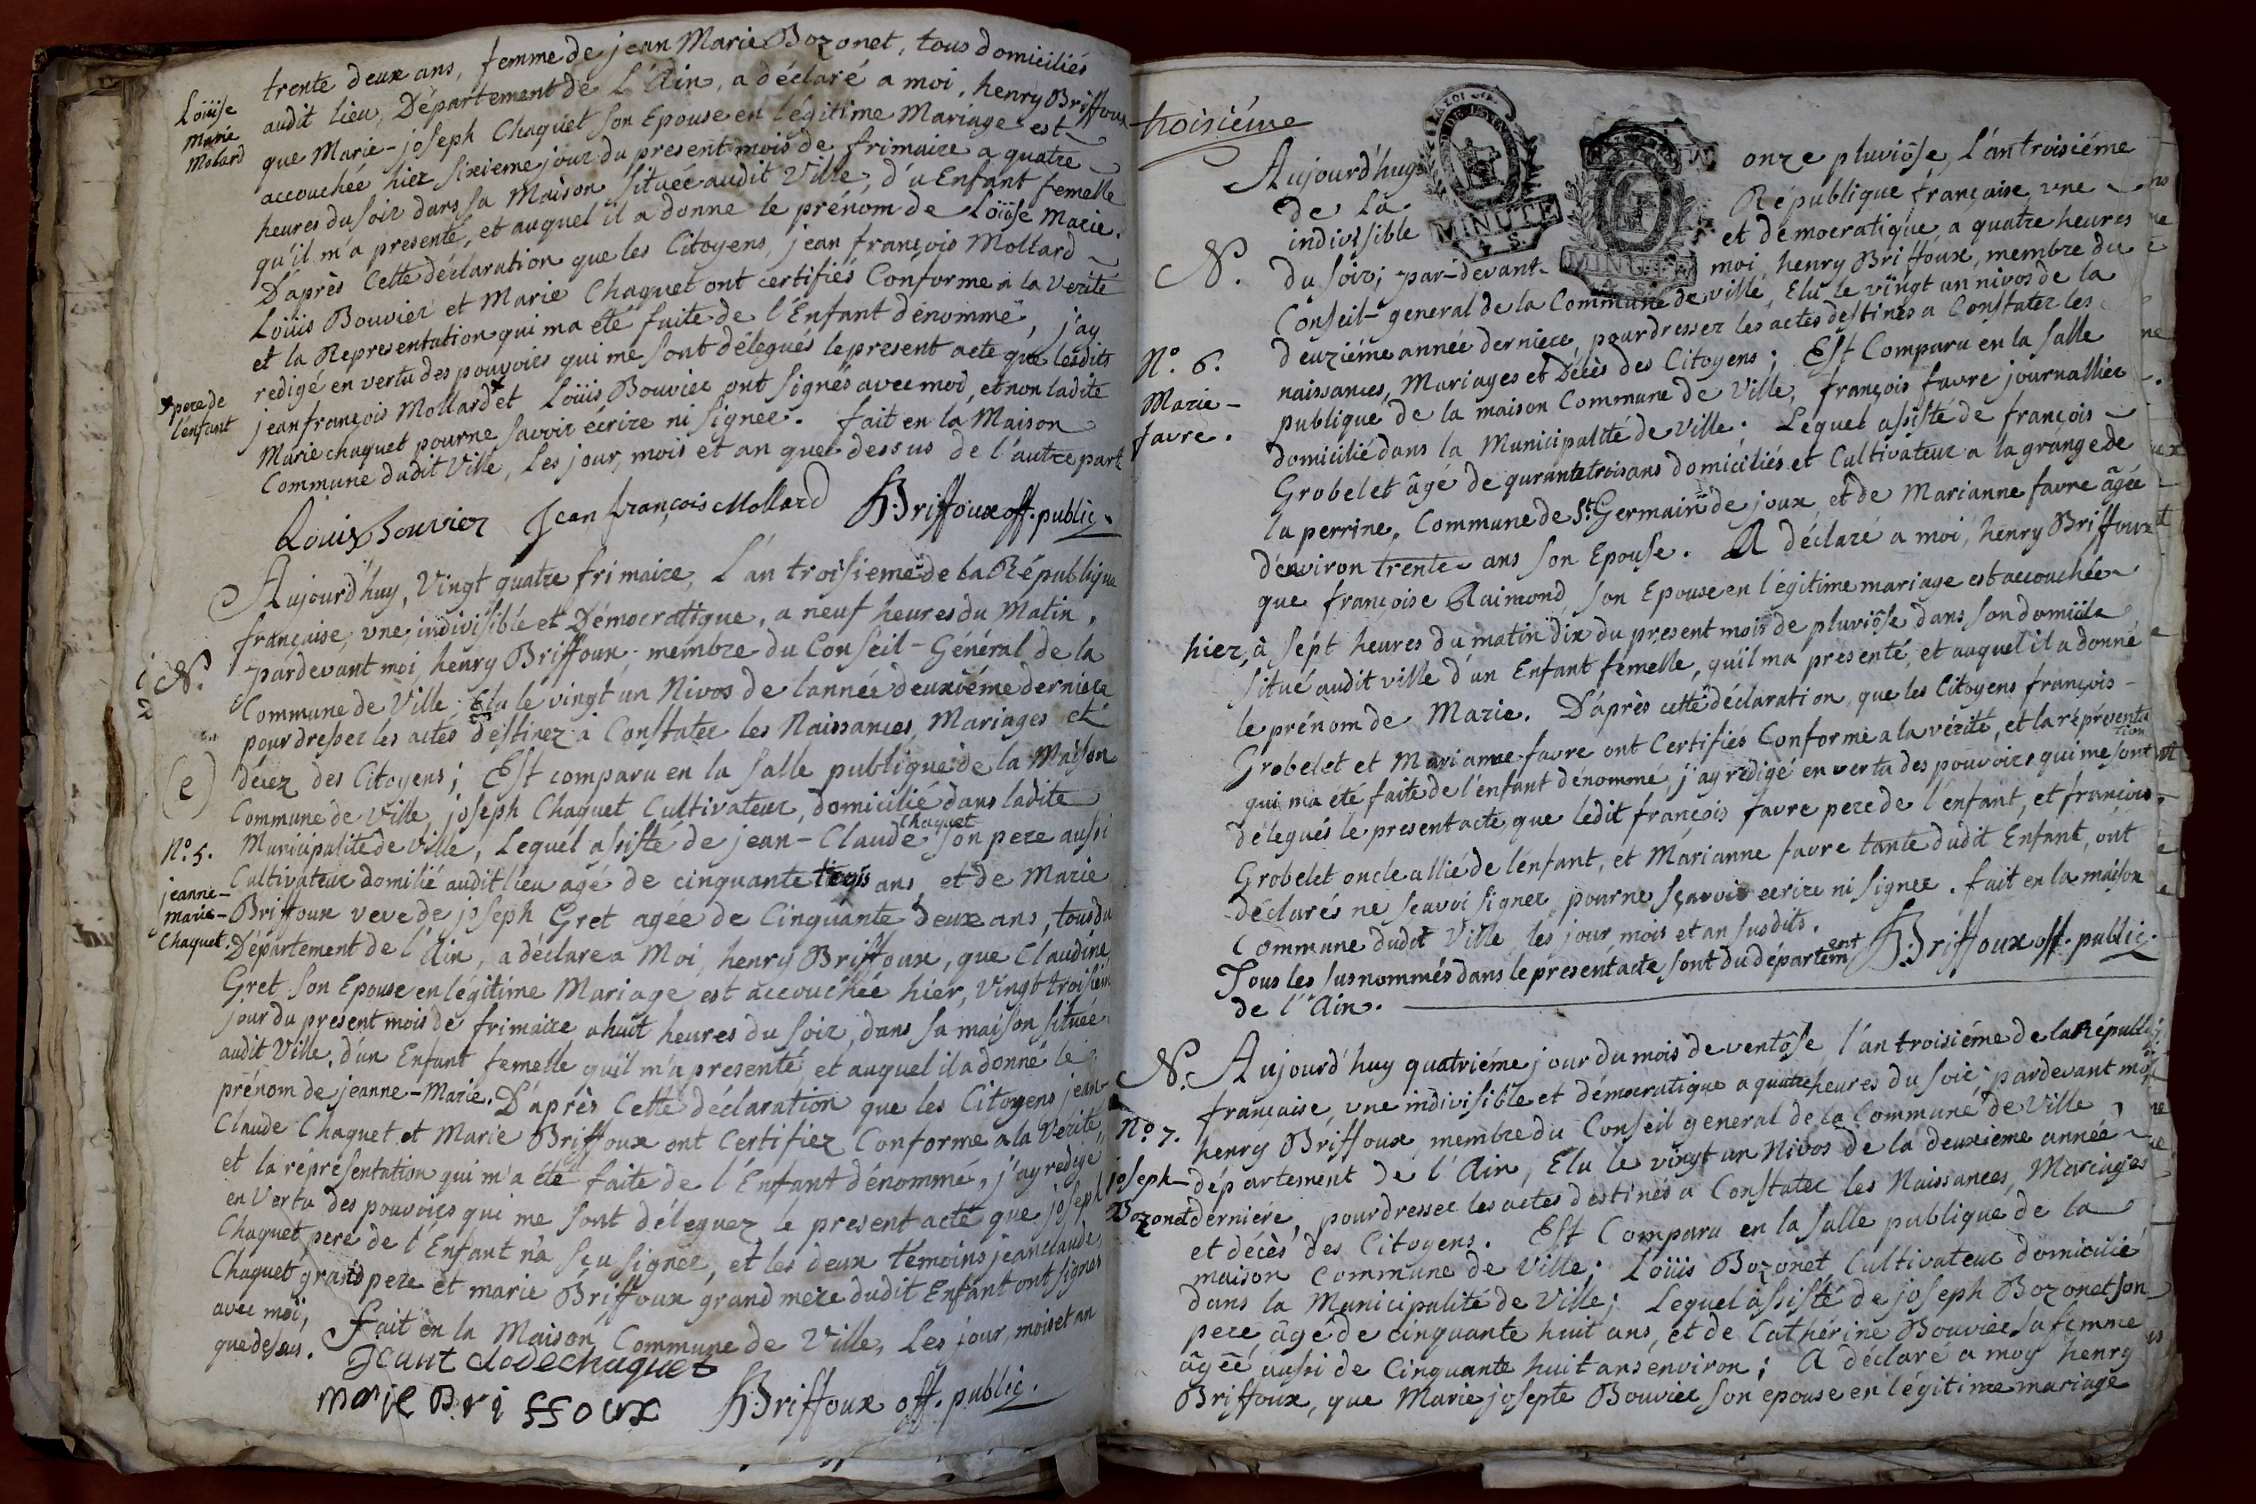 trente deux ans, femme de jean Marie Bozonet, tous domiciliés
audit lieu, Département de L'Ain, a déclaré a moi, henry Briffoux
Loüise
Marie
Molard
que Marie-joseph Chaquet son Epouse en légitime Mariage est
accouchée hier sixieme jour du present mois de frimaire a quatre
heures du soir dans sa Maison située audit Ville, d'u Enfant femelle
qu'il m'a presenté, et auquel il a donne le prénom de Loüise Marie.
D'après Cette déclaration que les Citoyens, jean françois Mollard
Loüis Bouvier et Marie Chaquet ont certifiés Conforme a la Verité
et la Representation qui ma été faite de l'Enfant dénommé, j'ay
redigé en vertu des pouvoirs qui me sont délegués le present acte que lesdits
x pere de
l'enfant
jean françois Mollard x et Loüis Bouvier ont signés avec moi, et non ladite
Marie chaquet pour ne savoir écrire ni signer. fait en la Maison
Commune dudit Ville, les jour, mois et an que dessus de l'autre part
Louis Bouvier Jean françois Mollard H. Briffoux off. public.
Aujourd'huy, Vingt quatre frimaire, L'an troisieme de la République
française, une, indivisible et Démocratique, a neuf heures du Matin,
N. pardevant moi, henry Briffoux, membre du Conseil-Général de la
Commune de Ville Elu le vingt un Nivos de lannée deuxiéme derniere
pour dresser les actes destinez à Constater les Naissances, Mariages et
(e) décez des Citoyens; Est comparu en la salle publique de la Maison
Commune de Ville, joseph Chaquet Cultivateur, domicilié dans ladite
N.º 5. Municipalité de Ville, Lequel assisté de jean-Claude Chaquet son pere aussi
jeanne-
marie-
Chaquet.
Cultivateur domilié audit lieu agé de cinquante trois ans, et de Marie
Briffoux veve de joseph Gret agée de Cinquante deux ans, tous du
Département de l'Ain, a déclaré a Moi, henry Briffoux, que Claudine
Gret son Epouse en légitime Mariage est accouchée hier, vingt troisiem
jour du present mois de frimaire a huit heures du soir, dans sa maison située
audit Ville, d'un Enfant femelle quil m'a presenté et auquel il a donné le
prénom de jeanne-Marie. D'après Cette déclaration que les Citoyens jean
Claude Chaquet et Marie Briffoux ont Certifiez Conforme a la Verité,
et la réprésentation qui m'a été faite de l'Enfant dénommé, j'ay redigé
en Vertu des pouvoirs qui me sont déleguez le present acte que joseph
Chaquet pere de l'Enfant n'a sçu signer, et les deux témoins jean claude
Chaquet grand pere et marie Briffoux grand mere dudit Enfant ont signés
avec moi, fait en la Maison Commune de Ville, Les jour mois et an
que dessus.
Jeant clodechaquet
marie Briffoux H. Briffoux off. public.
troisiéme
MINUTE
MINUTE
Aujourd'huy onze pluviôse, L'an troisiéme
de La République française, une
indivisible et démocratique, a quatre heures
N. du soir; par-devant moi, henry Briffoux, membre du
Conseil-general de la Commune de ville, Elu le vingt un nivos de la
deuziéme année derniere, pour dresser les actes destinés a Constater les
N.º 6.
Marie-
favre.
naissances, Mariages et Décès des Citoyens; Est Comparu en la salle
publique de la maison Commune de Ville, françois favre journallier
domicilié dans la Municipalité de ville. Lequel assisté de françois
Grobelet âgé de qurante trois ans domiciliés et Cultivateur a la grange de
la perrine, Commune de St. Germain de joux, et de Marianne favre âgée
d'environ trente ans son Epouse. A déclaré a moi, henry Briffoux
que françoise Raimond son Epouse en légitime mariage est accouchée
hier, à sept heures du matin dix du present mois de pluviôse dans son domicile
situé audit ville d'un Enfant femelle, qu'il ma presenté, et auquel il a donné
le prénom de Marie. D'après cette déclaration, que les Citoyens françois
Grobelet et Marianne favre ont Certifiés Conforme a la vérité, et la représentation
qui ma été faite de l'enfant dénommé, j'ay rédigé en vertu des pouvoirs qui me sont
délegués le present acte, que ledit françois favre pere de l'enfant, et françois
Grobelet oncle allié de l'enfant, et Marianne favre tante dudit Enfant, ont
déclarés ne scavoi signer, pour ne sçavoir ecrire ni signer. fait en la maison
Commune dudit Ville les jour mois et an susdits.
Tous les susnommés dans le present acte sont du départem.ent H. Briffoux off. public.
de l'Ain.
N. Aujourd'huy quatriéme jour du mois de ventôse, l'an troisiéme de la Républi
française, une indivisible et démocratique a quatre heures du soir, pardevant moi
N.º 7. henry Briffoux, membre du Conseil general de la Commune de Ville,
joseph
Bozonet
département de l'Ain, Elu le vingt un Nivos de la deuxieme année
derniére, pour dresser les actes destinés a Constater les Naissances, Mariages
et décès des Citoyens. Est Comparu en la salle publique de la
maison Commune de Ville: Loüis Bozonet Cultivateur domicilié
dans la Municipalité de Ville; Lequel assisté de joseph Bozonet son
pere âgé de cinquante huit ans, et de Cathérine Bouvier sa femme
âgée aussi de Cinquante huit ans environ; A déclaré a moy henry
Briffoux, que Marie josepte Bouvier son epouse en légitime mariage